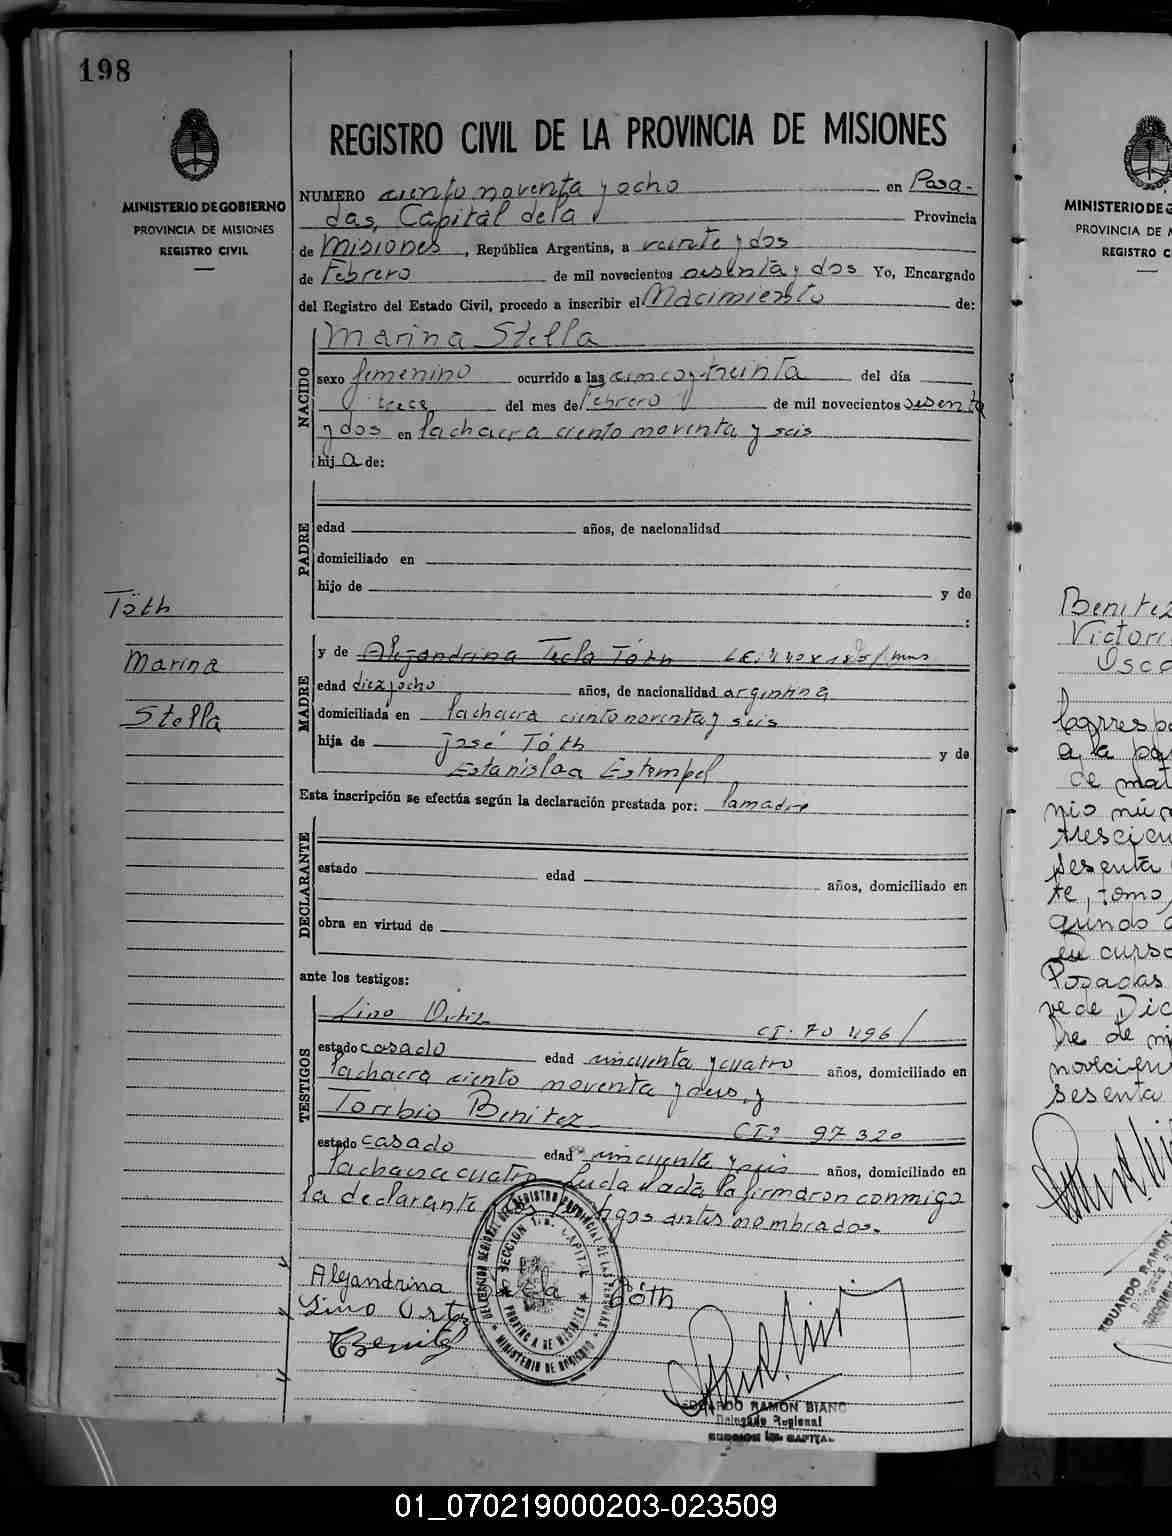 198
MINISTERIO DE GOBIERNO
PROVINCIA DE MISIONES
REGISTRO CIVIL
REGISTRO CIVIL DE LA PROVINCIA DE MISIONES
NUMERO ciento noventa y ocho en Posa-
das, Capital de la Provincia
de Misiones, República Argentina, a veinte y dos
de Febrero de mil novecientos sesenta y dos Yo, Encargado
del Registro del Estado Civil, procedo a inscribir el Nacimiento de:
NACIDO
Marina Stella
sexo femenino ocurrido a las cinco y treinta del día
trece del mes de Febrero de mil novecientos sesenta
y dos en la chacra ciento noventa y seis
hija de:
PADRE
edad años, de nacionalidad
domiciliado en
hijo de y de
:
MADRE
y de Alejandrina Tecla Tóth
edad diez y ocho años, de nacionalidad argentina
domiciliada en la chacra ciento noventa y seis
hija de José Tóth y de
Estanislaa Estempel
Esta inscripción se efectúa según la declaración prestada por: la madre
DECLARANTE
estado edad años, domiciliado en
obra en virtud de
ante los testigos:
TESTIGOS
Lino Ortiz CI. 70 496/
estado casado edad cincuenta y cuatro años, domiciliado en
la chacra ciento noventa y seis, y
Toribio Benitez CI: 97 320
estado casado edad cincuenta y seis años, domiciliado en
la chacra cuatro. Leida el acta, la firmaron conmigo
la declarante y los testigos antes nombrados.-
Alejandrina Tecla Tóth
Lino Ortiz
T Benitez
DELEGACION REGIONAL DEL REGISTRO PROVINCIAL DE LAS PERSONAS
SECCION 1ra. CAPITAL
PROVINCIA DE MISIONES
MINISTERIO DE GOBIERNO
EDUARDO RAMON BIANC
Delegado Regional
SECCION 1ra. CAPITAL
Tóth
Marina
Stella
MINISTERIO DE G
PROVINCIA DE M
REGISTRO C
Benitez
Victori
Osca
Corresp
a la pa
de mat
nio núm
trescien
sesenta
te, tomo
gundo
en curso
Posadas
ve de Dic
bre de m
novecien
sesenta
EDUARDO RAMON
01_070219000203-023509